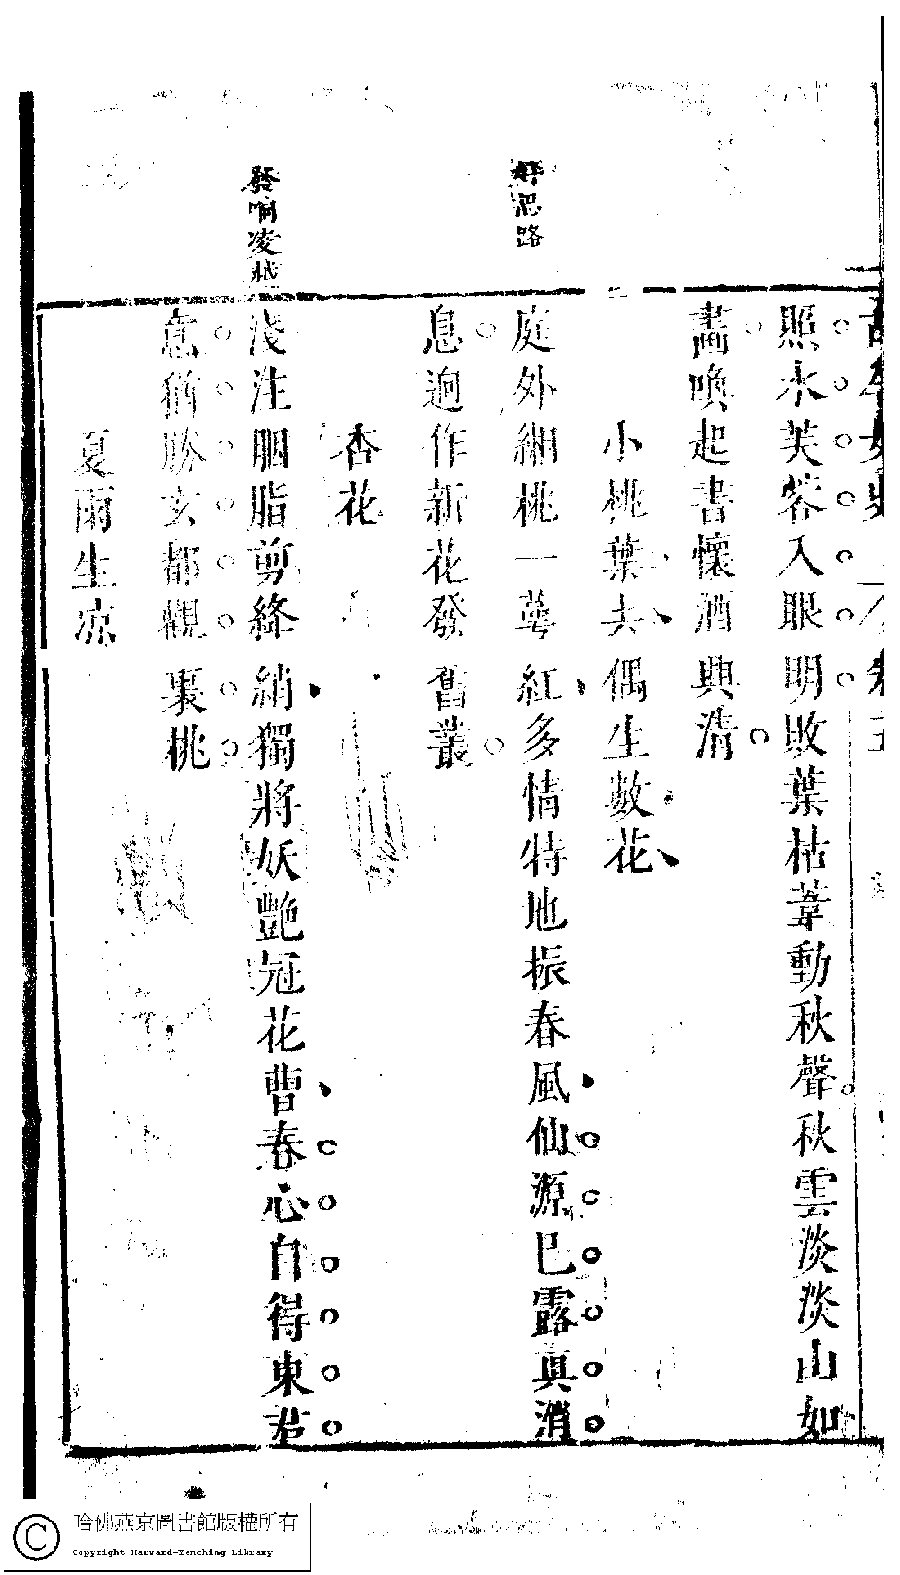 照水芙蓉入眼明敗葉枯葦動秋聲秋雲淡淡山如
畵喚起書懷酒興清
小桃葉去偶生數花
好思路
庭外緗桃一萼紅多情特地振春風仙源巳露真消
息迥作新花發舊叢
杏花
發响凌越
淺注胭脂剪絳綃獨將妖艶冠花曹春心自得東君
意猶勝玄都觀裏桃
夏雨生凉
哈佛燕京圖書館版權所有
Copyright Harvard-Yenching Library